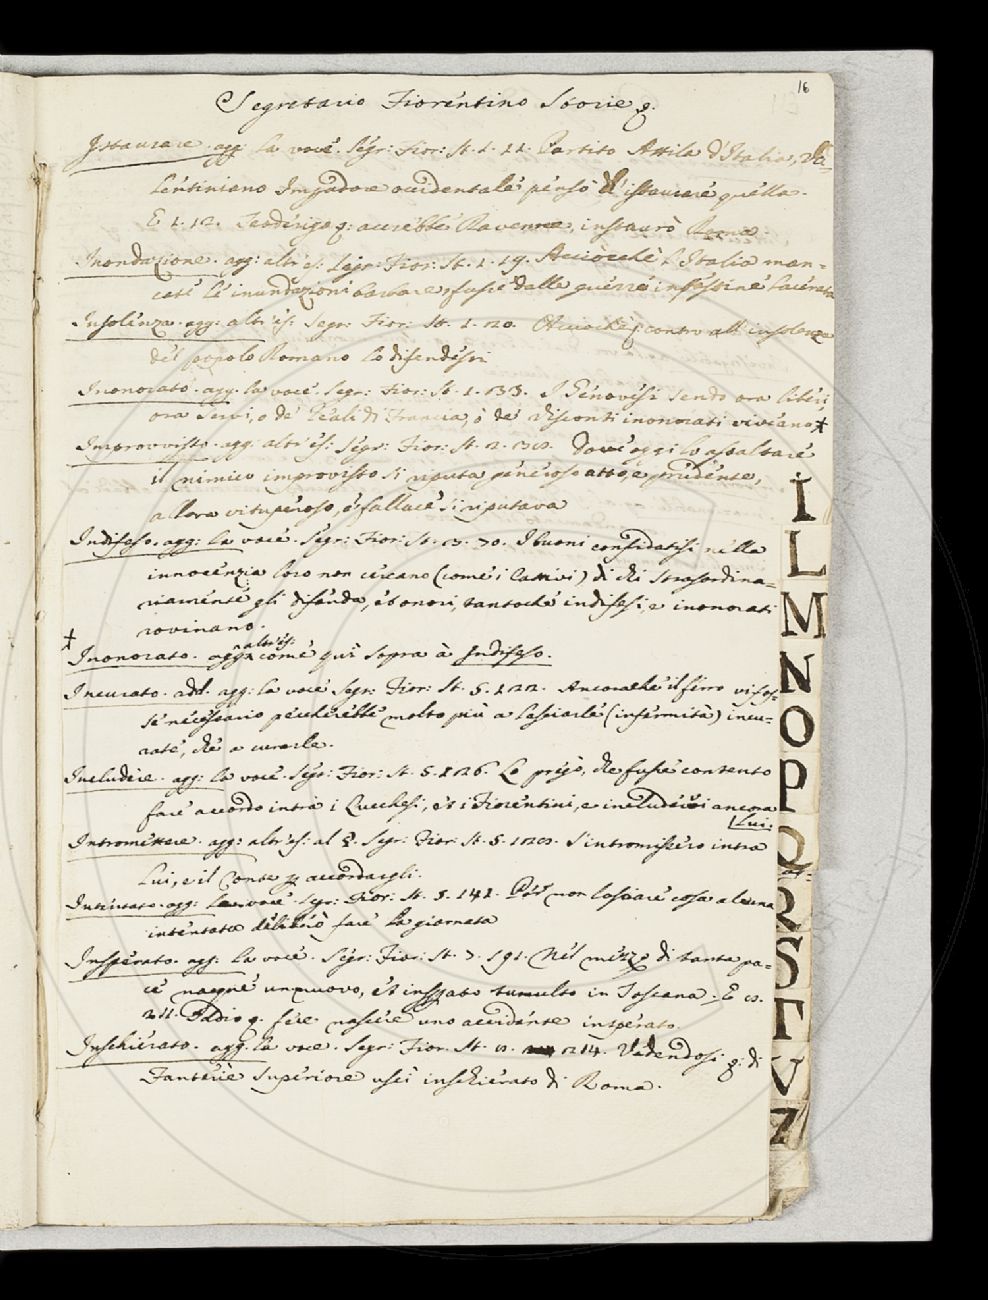 16
Segretario Fiorentino Storie q.
Istaurare. agg: la voce. Segr: Fior: St. 1. 11. Partito Attila d'Italia, Va=
lentiniano Impadore occidentale pensò d'istaurare quella.
E 1. 12. Teodirigo q: accrebbe Ravenna, instaurò Roma.
Inondazione. agg: altr' es: Segr: Fior: St. 1. 19. Acciocchè l'Italia man=
cati le inundazioni barbare fusse dalle guerre intestine lacerata
Insolenza. agg: altr' es: Segr: Fior: St. 1. 20. Acciochè q contro all' insolenza
del popolo Romano lo difendessi
Inonorato. agg. la voce. Segr: Fior: St. 1. 33. I Genovesi sendo ora liberi,
ora servi, o de' Reali di Francia, o de' Visconti inonorati vivíano ‡
Improvvisto. agg. altr' es: Segr: Fior: St. 2. Dove oggi lo assaltare
il nimico improvisto si riputa generoso atto, e prudente,
allora vituperoso, e fallace si riputava
Indifeso. agg: la voce. Segr: Fior: St. 3. 70. I buoni confidatisi nella
innocenzia loro non cercano (come i cattivi) di chi strasordina=
riamente gli difenda, et onori, tantochè indifesi, e inonorati
rovinano.
‡ altr' es:
Inonorato. agg: come quì sopra a Indifeso.
Incurato. add. agg: la voce Segr: Fior: St. 5. 122. Ancorachè il ferro vi fos=
se necessario peccherebbe molto più a lasciarle (infermità) incu=
rate, che a curarle.
Includere. agg: la voce. Segr: Fior: St. 5. 126. Lo pregò, che fusse contento
fare accordo intra i Lucchesi, et i Fiorentini, e includervi ancora
Lui.
Intromettere. agg: altr' es: al §. Segr: Fior: St. 5. S'intromissero intra
Lui, e il Conte p accordargli.
Intentato. agg: la voce. Segr: Fior: St. 5. 141. Per non lasciare cosa alcuna
intentata deliberò fare la giornata
Insperato. agg: la voce. Segr: Fior: St. 7. 191. Nel mezzo di tanta pa=
ce nacque un nuovo, et insperato tumulto in Toscana. E
211. q. fece nascere uno accidente insperato.
Inschierato. agg: la voce. Segr: Fior. St. 214. Vedendosi q: di
Fanterie superiore uscì inschierato di Roma.
I
L
M
N
O
P
Q
R
S
T
V
Z